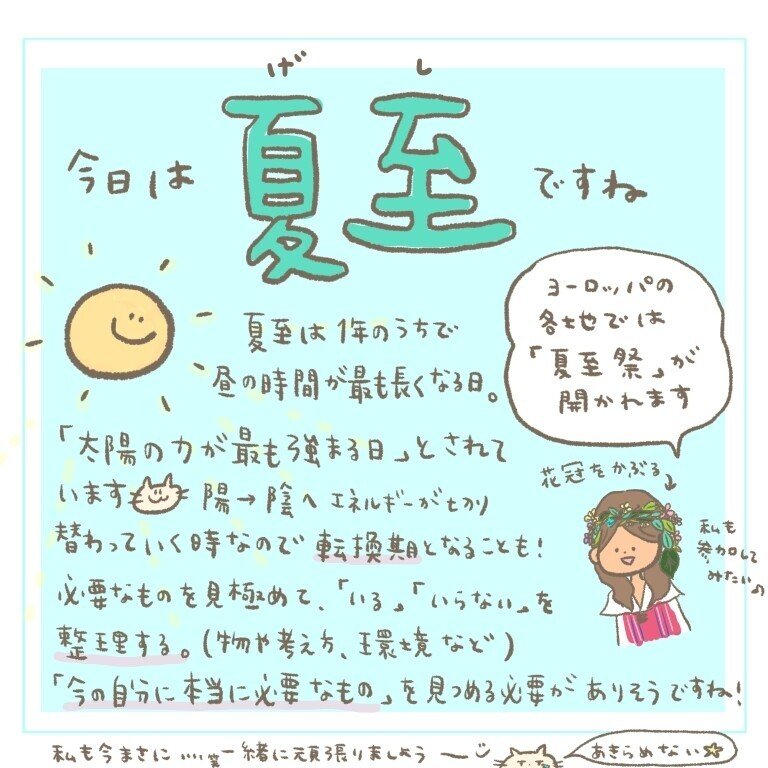 げし
今日は夏至ですね
ヨーロッパの
各地では
「夏至祭」が
開かれます
夏至は1年のうちで
昼の時間が最も長くなる日。
「太陽の力が最も強まる日」とされて
います 陽→陰へエネルギーが切り
替わっていく時なので転換期となることも!
必要なものを見極めて、「いる」「いらない」を
整理する。(物や考え方、環境など)
「今の自分に本当に必要なもの」を見つめる必要がありそうですね!
花冠をかぶる
私も
参加して
みたい♪
私も今まさに……笑 一緒に頑張りましょう
あきらめない☆